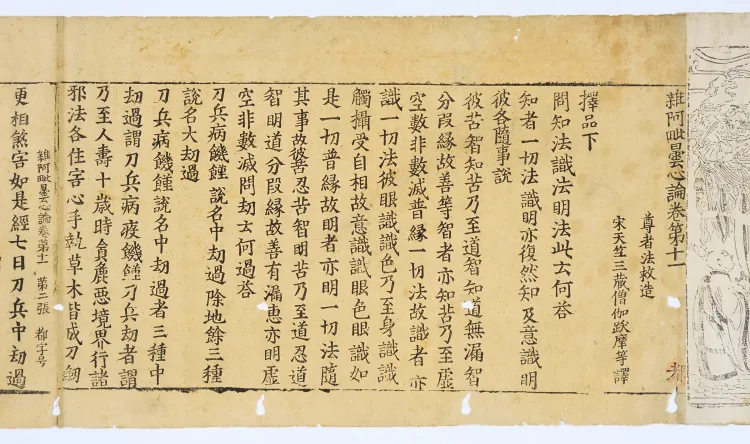 雜阿毗曇心論卷第十一
都
尊者法救造
宋天竺三藏僧伽跋摩等譯
擇品下
問知法識法明法此云何荅
知者一切法識明亦復然知及意識明
彼各隨事說
彼苦智知苦乃至道智知道無漏智
分段緣故善等智者亦知苦乃至虛
空數非數滅普緣一切法故識者亦
識一切法彼眼識識色乃至身識識
觸攝受自相故意識識眼色眼識如
是一切普緣故明者亦明一切法隨
其事故彼苦忍苦智明苦乃至道忍道
智明道分段緣故善有漏惠亦明虛
空非數滅問劫云何過荅
刀兵病饑饉說名中劫過除地餘三種
說名大劫過
刀兵病饑饉說名中劫過者三種中
劫過謂刀兵病疫饑饉刀兵劫者謂
乃至人壽十歲時貪麁惡境界行諸
邪法各住害心手執草木皆成刀劒
雜阿毗曇心論卷第十一 第二張 都字号
更相煞害如是經七日刀兵中劫過